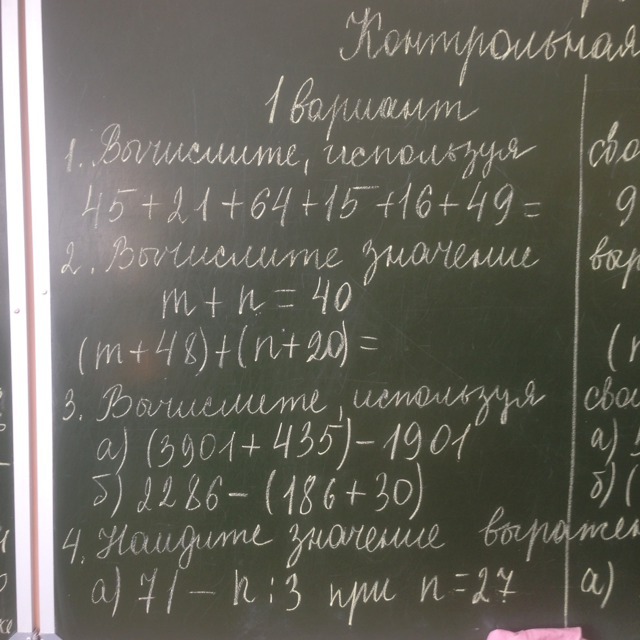 Контрольная
1 вариант
1. Вычислите, используя сво
45+21+64+15+16+49= 9
2. Вычислите значение выр
m+n=40
(m+48)+(n+20)= (
3. Вычислите, используя сво
а) (3901+435)-1901 а)
б) 2286-(186+30) б) (
4. Найдите значение выражен
а) 71-n:3 при n=27 а)